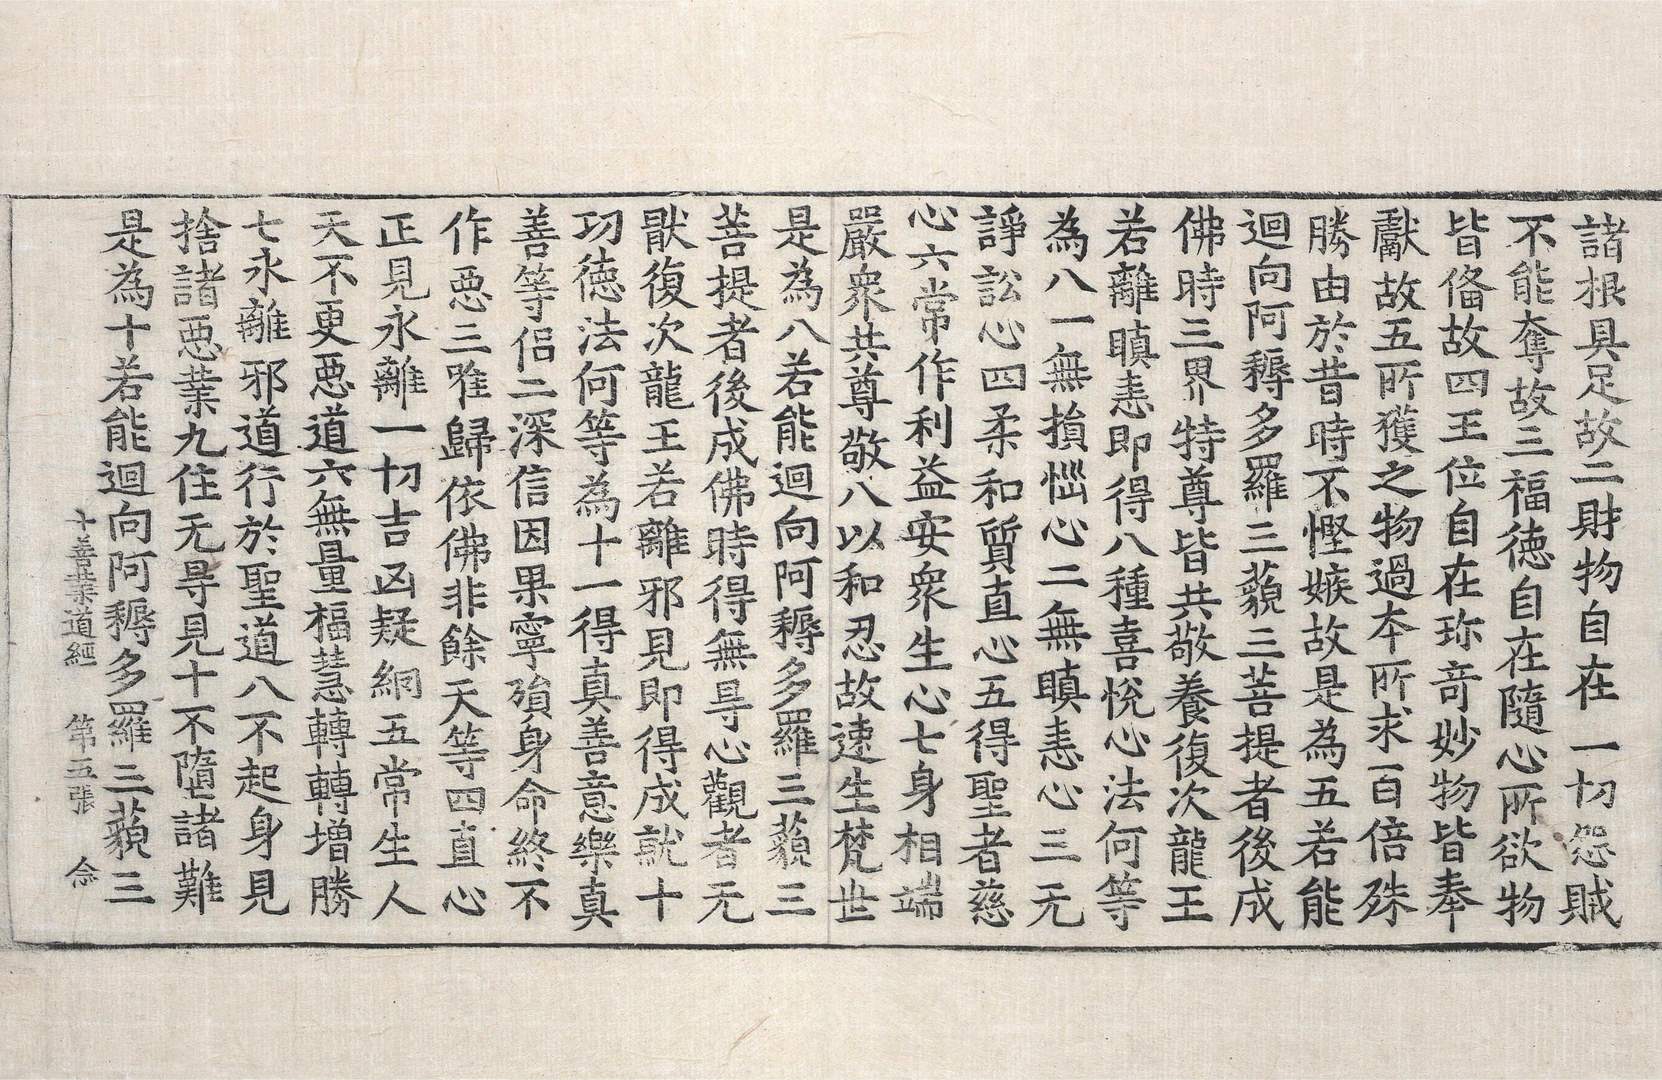 諸根具足故二財物自在一切怨賊
不能奪故三福德自在隨心所欲物
皆俻故四王位自在珎竒妙物皆奉
獻故五所獲之物過本所求百倍殊
勝由於昔時不慳嫉故是為五若能
迴向阿耨多羅三藐三菩提者後成
佛時三界特尊皆共敬養復次龍王
若離瞋恚即得八種喜悅心法何等
為八一無損惱心二無瞋恚心三无
諍訟心四柔和質直心五得聖者慈
心六常作利益安衆生心七身相端
嚴衆共尊敬八以和忍故速生梵世
是為八若能迴向阿耨多羅三藐三
菩提者後成佛時得無㝵心觀者无
猒復次龍王若離邪見即得成就十
功德法何等為十一得真善意樂真
善等侣二深信因果寧殞身命終不
作𢙣三唯歸依佛非餘天等四直心
正見永離一切吉凶疑網五常生人
天不更𢙣道六無量福慧轉轉增勝
七永離邪道行於聖道八不起身見
捨諸𢙣業九住无㝵見十不墮諸難
是為十若能迴向阿耨多羅三藐三
十善業道經 第五張 念